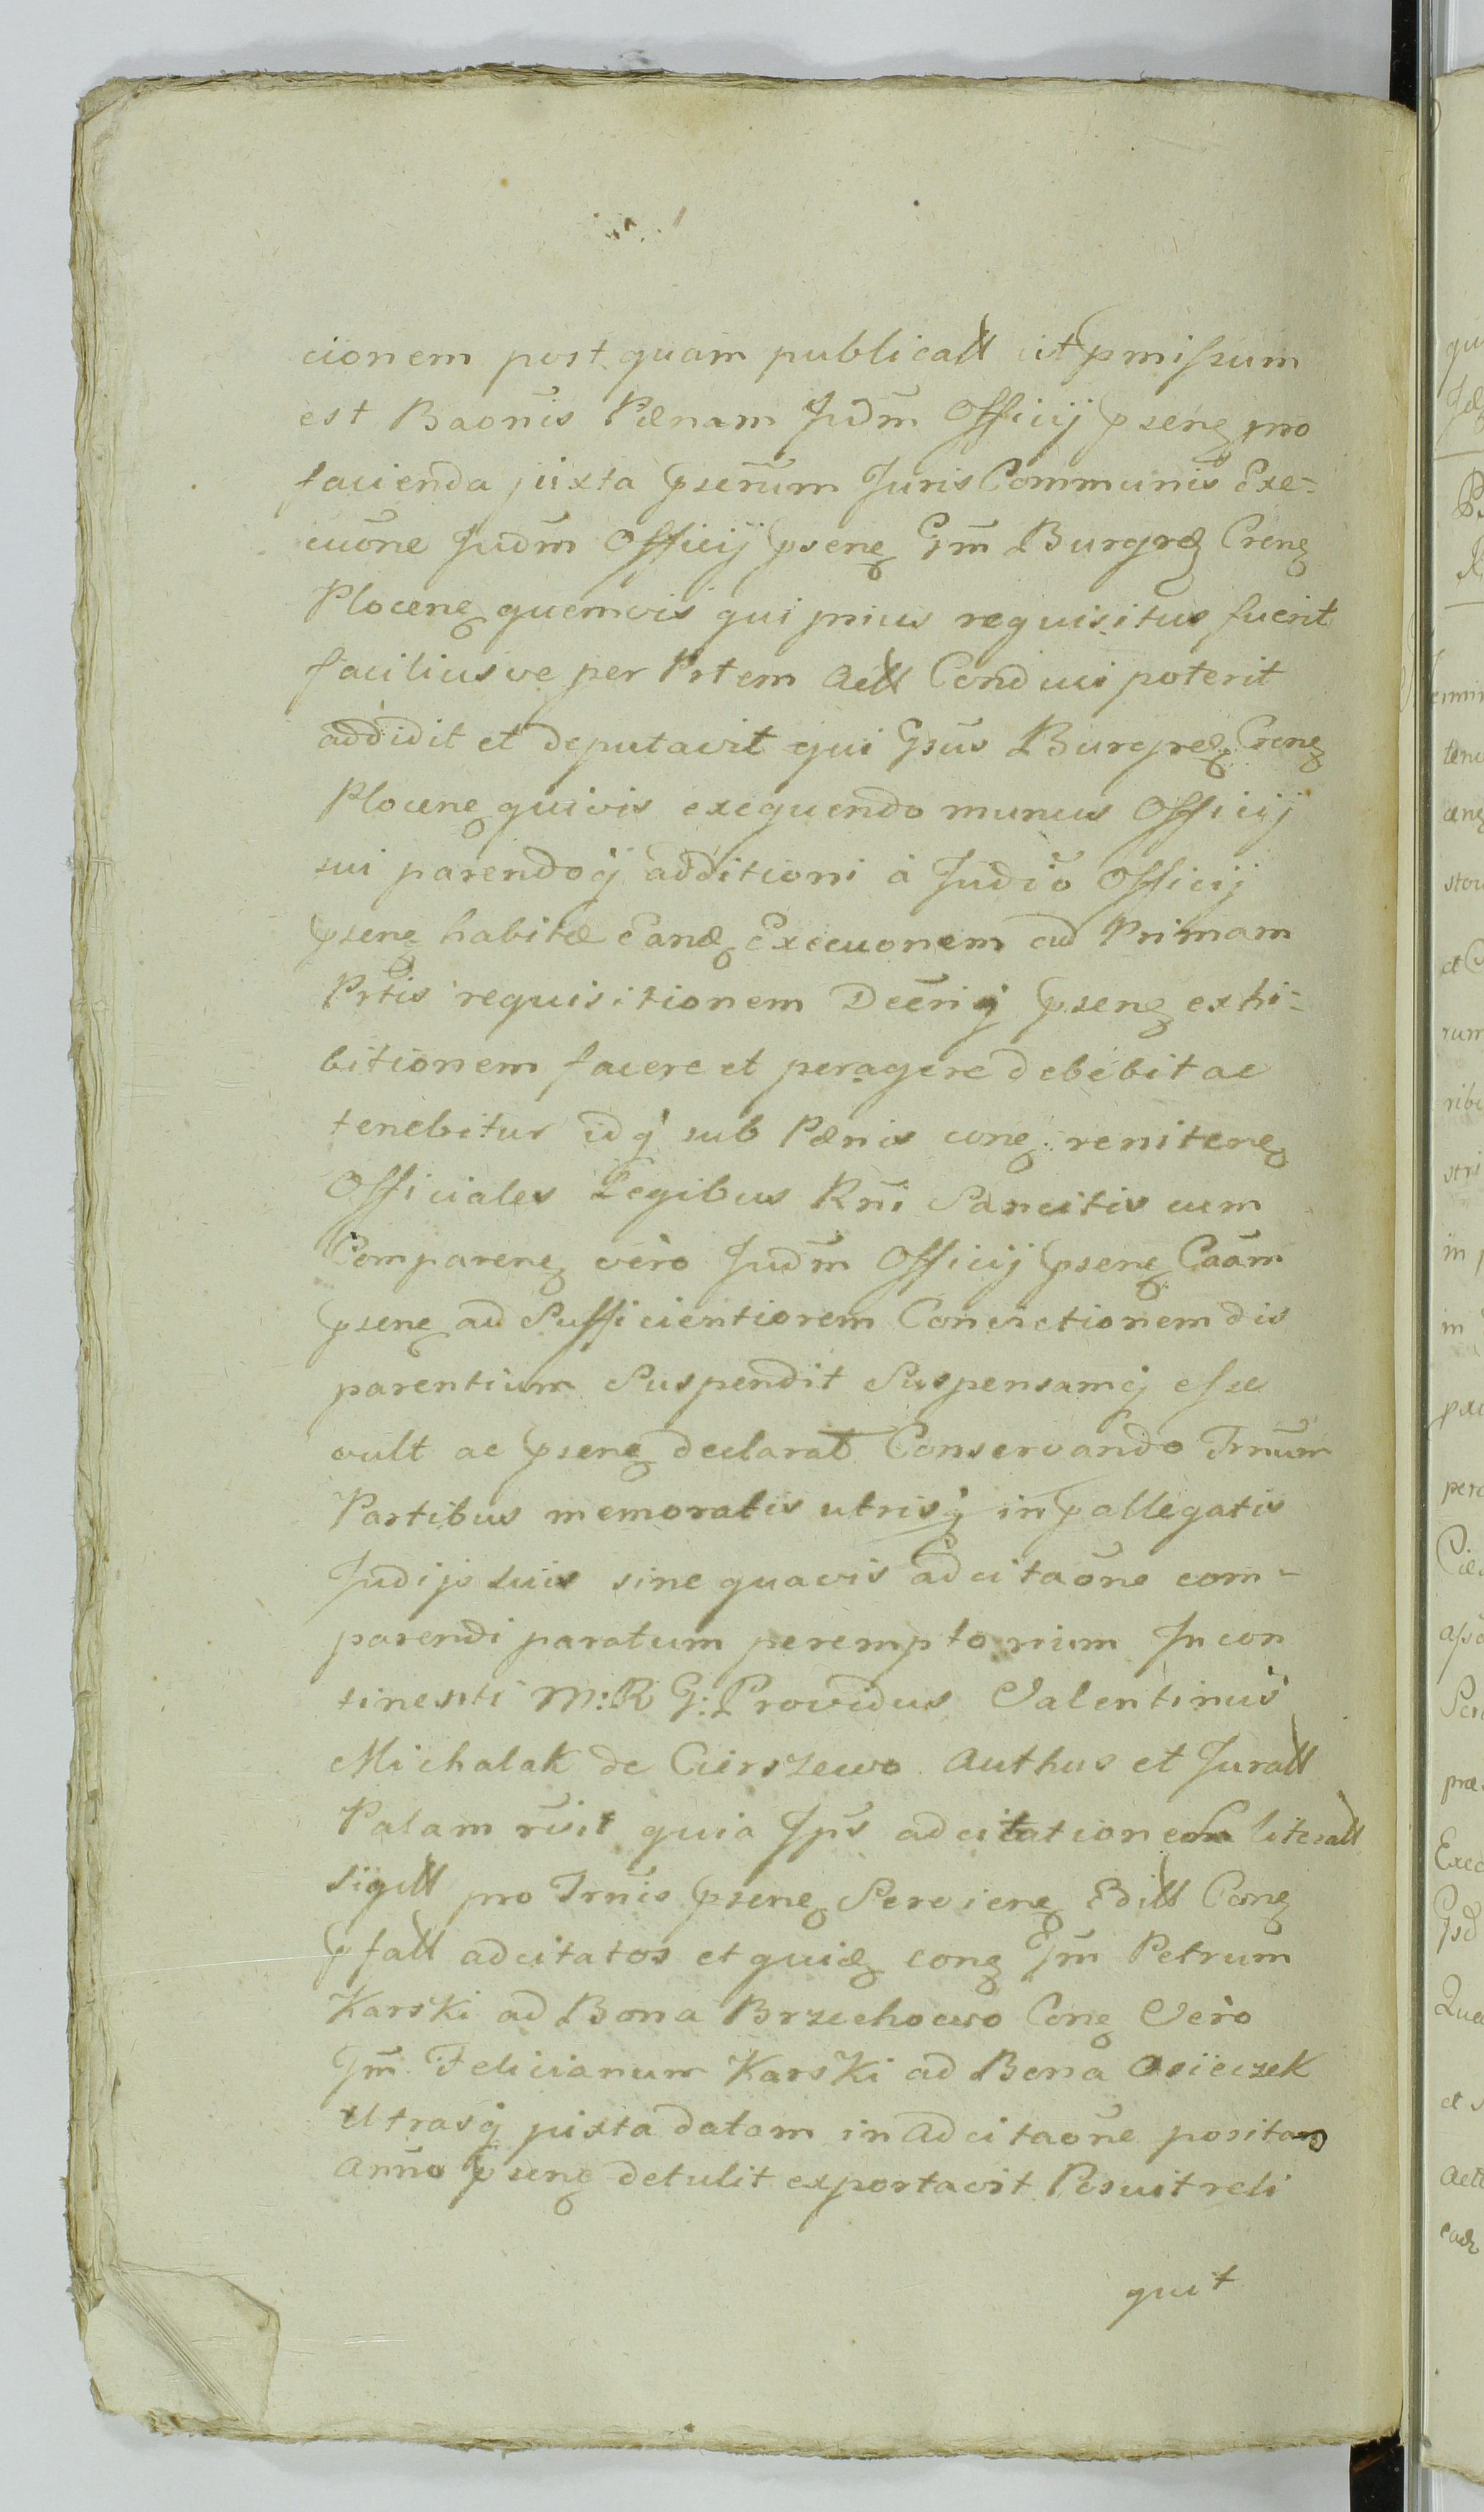 cionem post quam publicatt ut pmissum
est Baonis Pœnam Judm Officij psenę pro
facienda juxta psenūm Juris Communis Exe-
cuōne Judm Officij psenę Gm Burgręz Crenę
Plocenę quemvis qui prius requisitus fuerit
faciliusve per Ptem Actt Conduci poterit
addidit et deputavit qui Gsūs Burgręz Crenę
Plocenę quivis exequendo munus Officij
sui parendoq̃ additioni à Judiō Officij
psenę habitæ Eandę Execuonem ad Primam
Prtis requisitionem Decriq̃ psenę exhi-
bitionem facere et peragere debebit ac
tenebitur idq̃ sub Pœnis conę renitenę
Officiales Legibus Rni Sancitis cum
Comparenę vero Judm Officij psenę Caām
psenę ad Sufficientiorem Convictionem dis
parentium Suspendit Suspensamq̃ esse
vult ac psenę declarat Conservando Trnūm
Partibus memoratis utrisq̃ in pallegatis
Judijs suis sine quavis adcitaōne com-
parendi paratum peremptorium In con
tinenti M: R G: Providus Valentinus
Michalak de Cierszewo Authus et Juratt
Palam rvit quia Jps adcitationem literatt
sigill pro Trnis psenę Servienę Editt Conę
pfatt adcitatos et quidę conę Gm Petrum
Karski ad Bona Brzechowo Conę Vero
Gm Felicianum Karski ad Bona Osieczek
Utrasq̃ juxta datam in Adcitaōne positam
Anno psenę detulit exportavit Posuit reli
quit